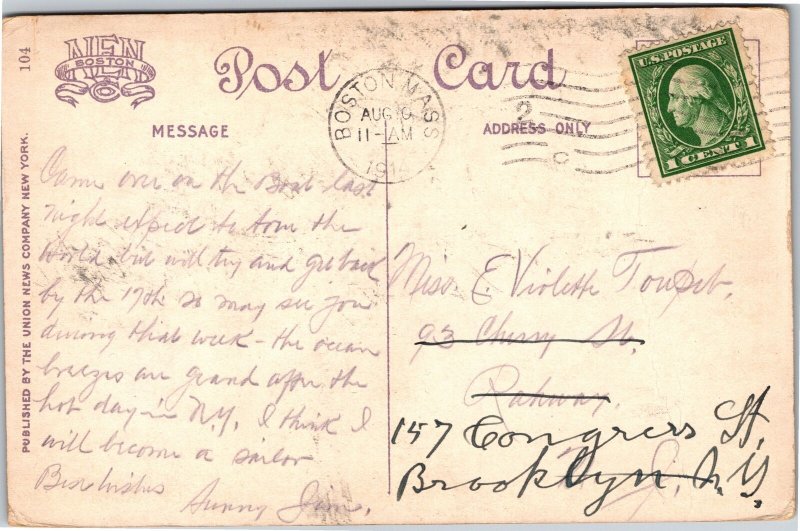 104
NEN
BOSTON
Post Card
BOSTON MASS
AUG 10
11-AM
1914
U.S. POSTAGE
1 CENT 1
MESSAGE
ADDRESS ONLY
PUBLISHED BY THE UNION NEWS COMPANY NEW YORK.
Came over on the Boat last
night expect to tour the
World but will try and get back
by the 17th so may see you
during that week - the ocean
breezes are grand after the
hot day in N.Y. I think I
will become a sailor
Best wishes
Sunny Jim.
Miss. E. Violette
93 Cherry St.
Rahway.
N. J.
157 Congress St,
Brooklyn, N.Y.